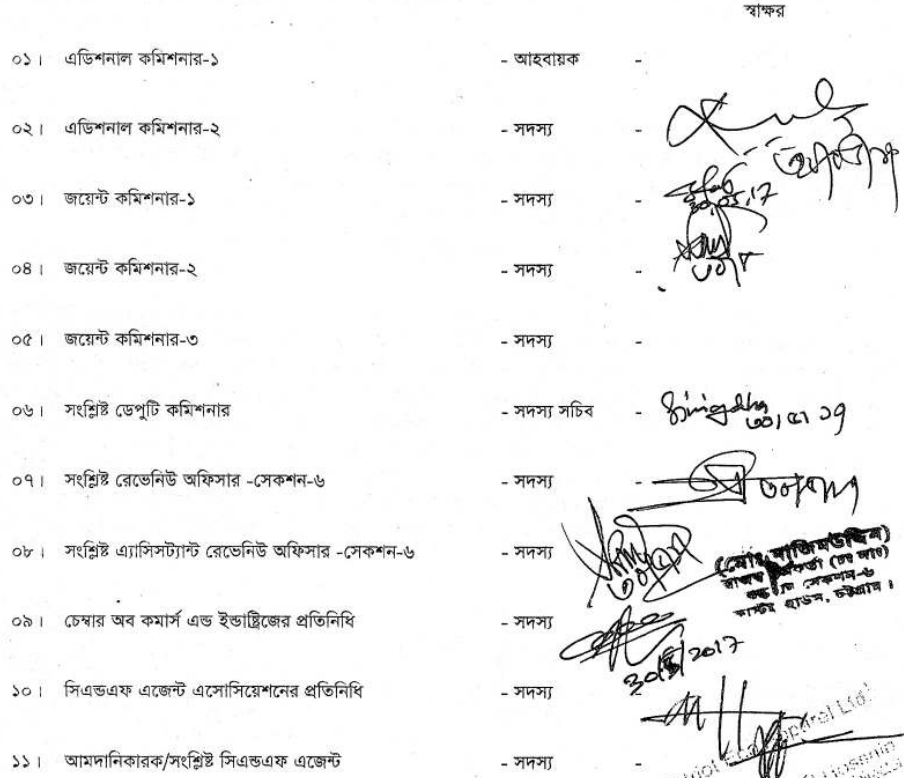 স্বাক্ষর
০১। এডিশনাল কমিশনার-১ - আহবায়ক -
০২। এডিশনাল কমিশনার-২ - সদস্য -
০৩। জয়েন্ট কমিশনার-১ - সদস্য - 30.05.17
০৪। জয়েন্ট কমিশনার-২ - সদস্য -
০৫। জয়েন্ট কমিশনার-৩ - সদস্য -
০৬। সংশ্লিষ্ট ডেপুটি কমিশনার - সদস্য সচিব -
০৭। সংশ্লিষ্ট রেভেনিউ অফিসার -সেকশন-৬ - সদস্য -
০৮। সংশ্লিষ্ট এ্যাসিসট্যান্ট রেভেনিউ অফিসার -সেকশন-৬ - সদস্য
সেকশন-৬
কাস্টম হাউস, চট্টগ্রাম।
০৯। চেম্বার অব কমার্স এন্ড ইন্ডাষ্ট্রিজের প্রতিনিধি - সদস্য
30/5/2017
১০। সিএন্ডএফ এজেন্ট এসোসিয়েশনের প্রতিনিধি - সদস্য
১১। আমদানিকারক/সংশ্লিষ্ট সিএন্ডএফ এজেন্ট - সদস্য -